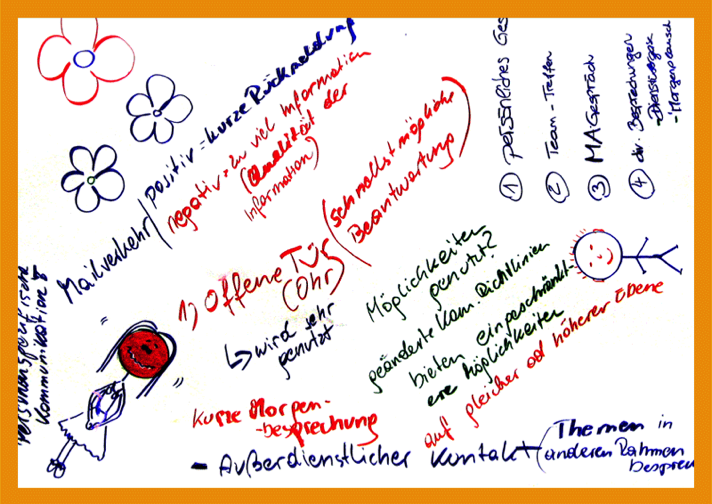 Mailverkehr
positiv = kurze Rückmeldung
negativ = zu viel Information
(Qualität der
Information)
1) Offene Tür
(Ohr)
(schnellst mögliche
Beantwortung)
↳ wird sehr
genutzt
① persönliches Ges
② Team - Treffen
③ MA Gespräch
④ div. Besprechungen
- Morgenplausch
Möglichkeiten
genutzt?
geänderte Kom. Richtlinien
bieten eingeschränkt-
ere Möglichkeiten
auf gleicher od höherer Ebene
Kommunikation
kurze Morgen-
besprechung
- Außerdienstlicher Kontakt
Themen in
anderen Rahmen
besprec